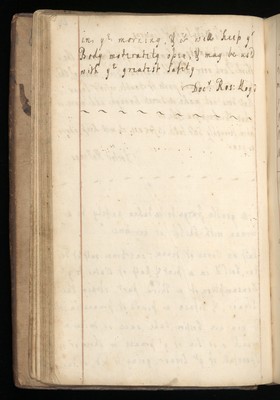 in ye morning, & it will keep ye
Body moderately open, & may be us'd
with ye greatest safety
Docr Ros: